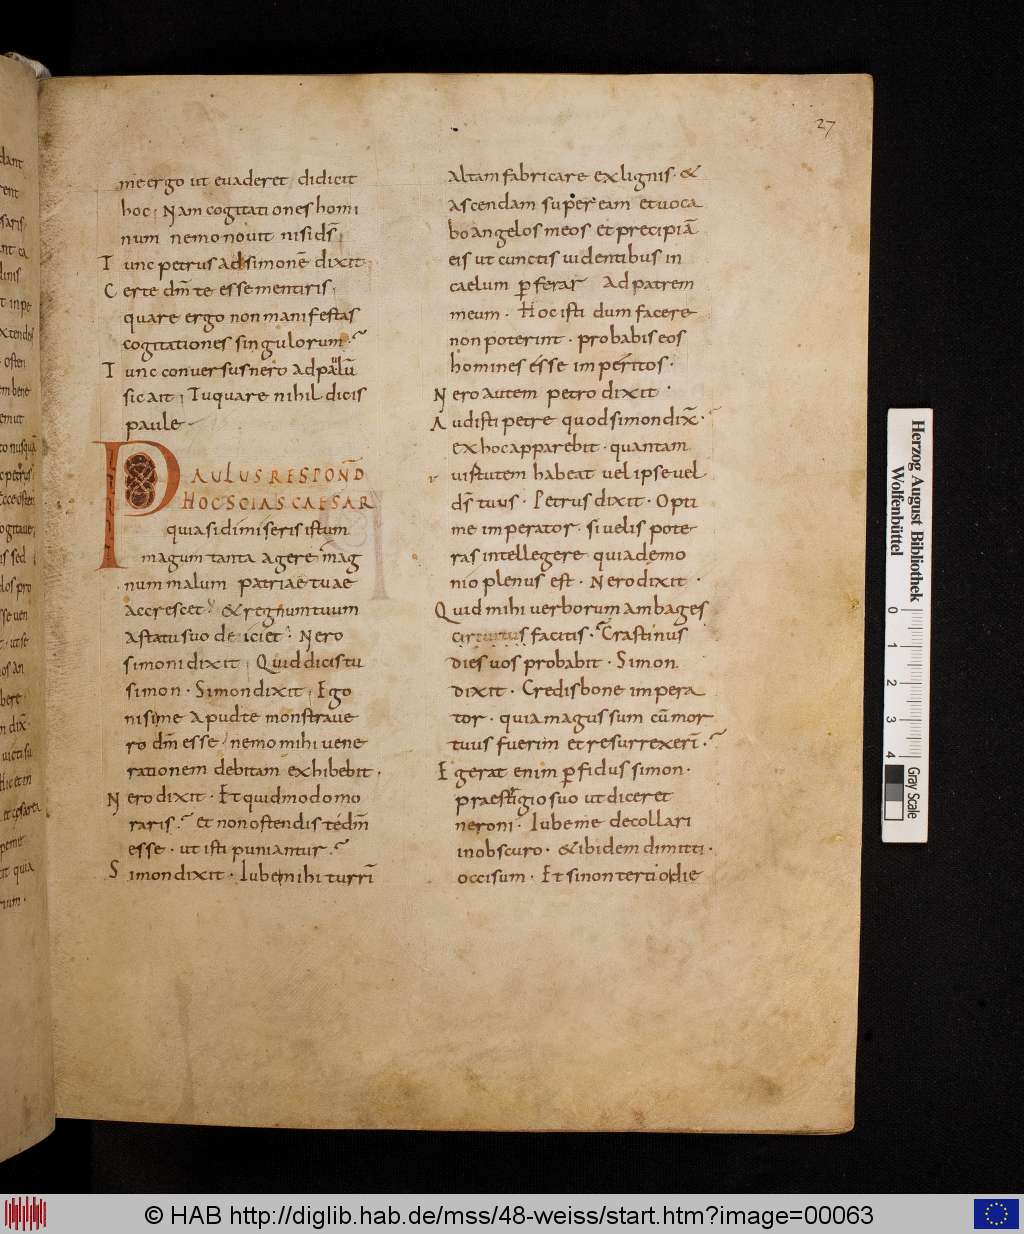 27
me ergo ut euaderet didicit
hoc; Nam cogitationes homi
num nemo nouit nisi ds̄;
Tunc petrus ad simonē dixit
Certe dm̄ te esse mentiris;
quare ergo non manifestas
cogitationes singulorum;
Tunc conuersus nero ad paulū
sic ait; Tu quare nihil dicis
paule
PAULUS RESPOND̄
HOC SCIAS CAESAR
quia si dimiseris istum
magum tanta agere mag
num malum patriae tuae
accrescet & regnum tuum
a statu suo deiciet. Nero
simoni dixit; Quid dicis tu
simon. Simon dixit; Ego
nisi me apud te monstraue
ro dm̄ esse; nemo mihi uene
rationem debitam exhibebit.
Nero dixit. Et quid modo mo
raris. et non ostendis te dm̄
esse. ut isti puniantur.
Simon dixit. Iube mihi turrī
altam fabricare ex lignis. &
ascendam super eam et uoca
bo angelos meos et precipiā
eis ut cunctis uidentibus in
caelum ꝑferar Ad patrem
meum. Hoc isti dum facere
non poterint. probabis eos
homines esse imperitos.
Nero autem petro dixit.
Audisti petre quod simon dix̄.
ex hoc apparebit. quantam
uirtutem habeat uel ipse uel
ds̄ tuus. Petrus dixit. Opti
me imperator. si uelis pote
ras intellegere quia demo
nio plenus est. Nero dixit.
Quid mihi uerborum ambages
facitis. Crastinus
dies uos probabit. Simon
dixit. Credis bone impera
tor. quia magus sum cū mor
tuus fuerim et resurrexerī.
Egerat enim ꝑfidus simon.
praestigio suo ut diceret
neroni. Iube me decollari
in obscuro. & ibidem dimitti.
occisum. Et si non tertio die
Herzog August Bibliothek
Wolfenbüttel
0 1 2 3 4
Gray Scale
© HAB http://diglib.hab.de/mss/48-weiss/start.htm?image=00063